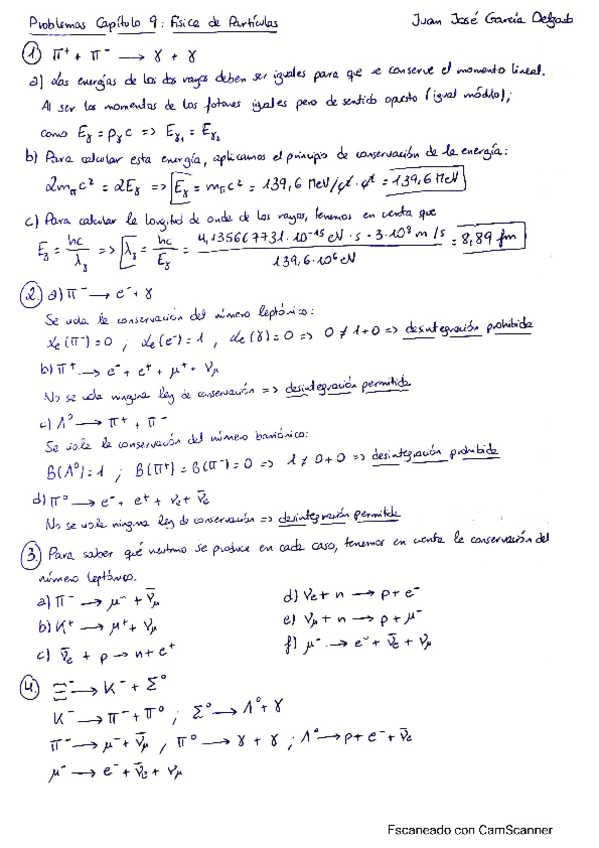 Problemas Capítulo 9: Física de Partículas
Juan José García Delgado
① π⁺ + π⁻ → γ + γ
a) Las energías de los dos rayos deben ser iguales para que se conserve el momento lineal.
Al ser los momentos de los fotones iguales pero de sentido opuesto (igual módulo);
como Eγ = pγ c => Eγ₁ = Eγ₂
b) Para calcular esta energía, aplicamos el principio de conservación de la energía:
2mπc² = 2Eγ => Eγ = mπc² = 139,6 MeV/c² · c² = 139,6 MeV
c) Para calcular la longitud de onda de los rayos, tenemos en cuenta que
Eγ = hc/λγ => λγ = hc/Eγ = 4,135667731·10⁻¹⁵ eV·s · 3·10⁸ m/s / 139,6·10⁶ eV = 8,89 fm
② a) π⁻ → e⁻ + γ
Se viola la conservación del número leptónico:
Le(π⁻) = 0 ; Le(e⁻) = 1 , Le(γ) = 0 => 0 ≠ 1+0 => desintegración prohibida
b) π⁺ → e⁻ + e⁺ + μ⁺ + νμ
No se viola ninguna ley de conservación => desintegración permitida
c) Λ⁰ → π⁺ + π⁻
Se viola la conservación del número bariónico:
B(Λ⁰) = 1 ; B(π⁺) = B(π⁻) = 0 => 1 ≠ 0+0 => desintegración prohibida
d) π⁰ → e⁻ + e⁺ + νe + ν̄e
No se viola ninguna ley de conservación => desintegración permitida
③ Para saber qué neutrino se produce en cada caso, tenemos en cuenta la conservación del
número leptónico.
a) π⁻ → μ⁻ + ν̄μ
b) K⁺ → μ⁺ + νμ
c) ν̄e + p → n + e⁺
d) νe + n → p + e⁻
e) νμ + n → p + μ⁻
f) μ⁻ → e⁻ + ν̄e + νμ
④ Ξ⁻ → K⁻ + Σ⁰
K⁻ → π⁻ + π⁰ ; Σ⁰ → Λ⁰ + γ
π⁻ → μ⁻ + ν̄μ , π⁰ → γ + γ ; Λ⁰ → p + e⁻ + ν̄e
μ⁻ → e⁻ + ν̄e + νμ
Escaneado con CamScanner